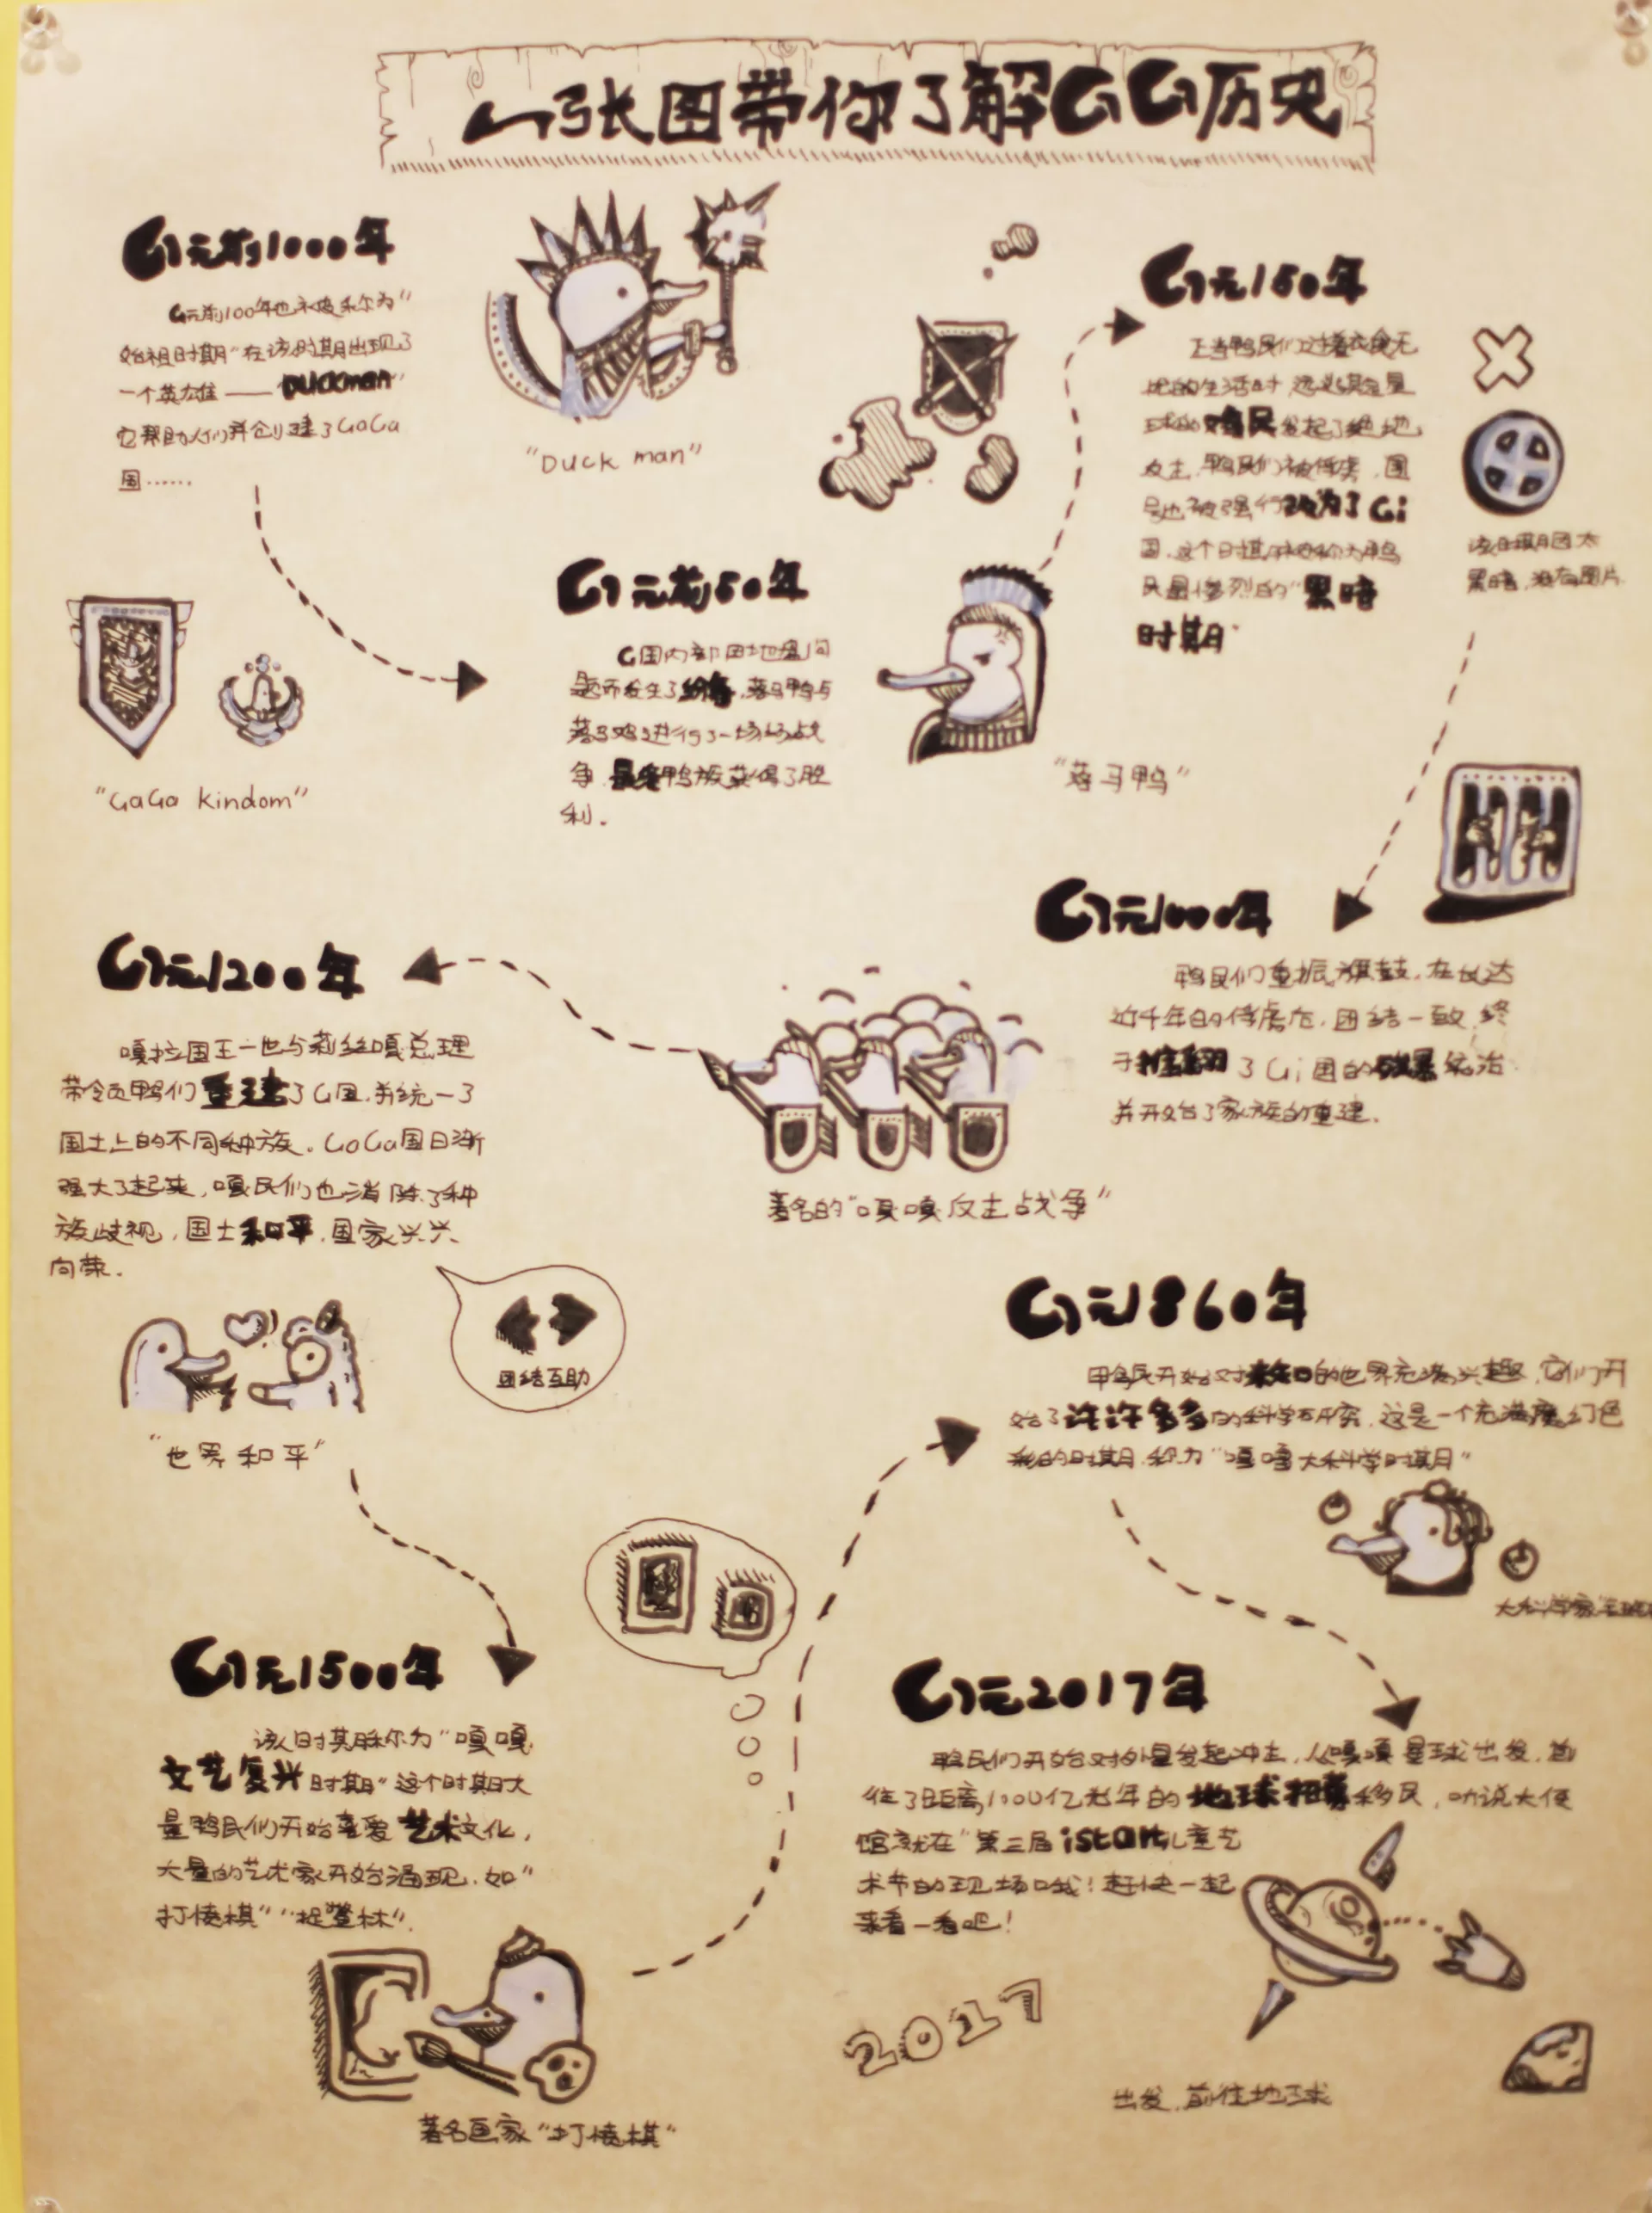 一张图带你了解GG历史
G元前1000年
G元前100年也被称为“
始祖时期”在该时期出现了
一个英雄——“Duckman”
它帮助人们并创建了GaGa
国……
“Duck man”
“GaGa kindom”
G元前50年
G国内部因地盘问
题而发生了纷争,落马鸭与
落马鸡进行了一场场战
争,最终鸭族获得了胜
利.
“落马鸭”
G元150年
正当鸭民们过着衣食无
的生活时
球的鸡民发起了绝地
反击,鸭民们被俘虏,国
号也被强行改为了Gi
国.这个时期被称为鸭
民最惨烈的“黑暗
时期”
该时期因太
黑暗,没有图片
G元1000年
鸭民们重振旗鼓,在长达
近千年的俘虏后,团结一致,终
于推翻了Gi国的残暴统治
并开始了家族的重建.
著名的“嘎嘎反击战争”
G元1200年
嘎拉国王一世与莉丝嘎总理
带领鸭们重建了G国.并统一了
国土上的不同种族。GaGa国日渐
强大了起来,嘎民们也消除了种
族歧视,国土和平,国家兴兴
向荣.
团结互助
“世界和平”
G元1500年
该时期称为“嘎嘎
文艺复兴时期”这个时期大
量鸭民们开始喜爱艺术文化,
大量的艺术家开始涌现.如“
打倭棋”“捉蹩林”.
著名画家“打倭棋”
G元1860年
鸭民开始对未知的世界充满兴趣,它们开
始了许许多多的科学研究,这是一个充满魔幻色
彩的时期.称为“嘎嘎大科学时期”
大科学家
G元2017年
鸭民们开始对外星发起冲击,从嘎嘎星球出发,前
往了距离1000亿光年的地球招募移民,听说大使
馆就在“第三届istart儿童艺
术节的现场哦!赶快一起
来看一看吧!
2017
出发,前往地球